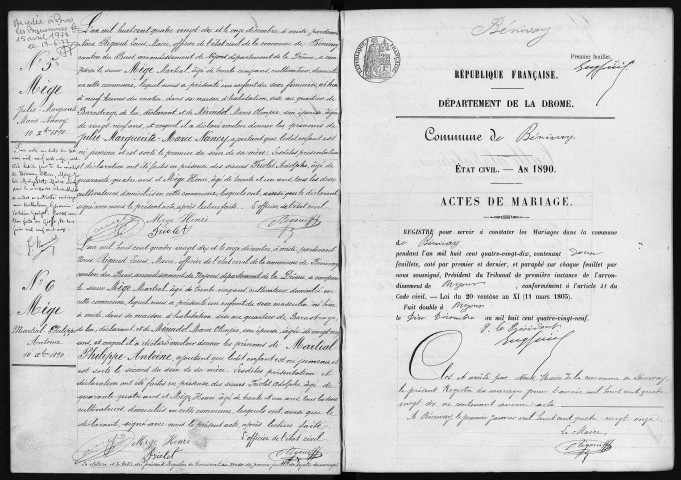 N° 5
Mège
Julie Marguerite
Marie Nancy
10 Xbre 1890
L'an mil huit cent quatre vingt dix et le onze décembre, à midi, pardevant
nous Rigaud Louis, Maire, officier de l'état civil de la commune de Bénivay
canton du Buis, arrondissement de Nyons, département de la Drôme, a com-
paru le sieur Mège Martial, âgé de trente cinq ans, cultivateur, domicilié
en cette commune, lequel nous a présenté un enfant du sexe féminin, né hier
à neuf heures du matin, dans sa maison d'habitation, sise au quartier de
Barastrage, de lui, déclarant, et de Mérindol Marie Olimpe, son épouse, âgée de
vingt neuf ans, et auquel il a déclaré vouloir donner les prénoms de
Julie Marguerite Marie Nancy, ajoutant que le dit enfant est
né jumeau et est sorti le premier du sein de sa mère. Les dites présentation et
déclaration ont été faites en présence des sieurs Friolet Adolphe, âgé de
quarante quatre ans et Mège Henri, âgé de trente et un ans, tous les deux
cultivateurs domiciliés en cette commune, lesquels ont, ainsi que le décla-
rant signé avec nous le présent acte, après lecture faite. L'officier de l'état civil
Mège Henri
Friolet
Rigaud
N° 6
Mège
Martial Philippe
Antoine
10 Xbre 1890
L'an mil huit cent quatre vingt dix et le onze décembre, à midi, pardevant nous
Rigaud Louis, Maire, officier de l'état civil de la commune de Bénivay
canton du Buis, arrondissement de Nyons, département de la Drôme, a comparu
le sieur Mège Martial, âgé de trente cinq ans, cultivateur, domicilié en
cette commune, lequel nous a présenté un enfant du sexe masculin, né hier
à midi, dans sa maison d'habitation, sise au quartier de Barastrage
de lui, déclarant, et de Mérindol Marie Olimpe, son épouse, âgée de vingt neuf
ans, et auquel il a déclaré vouloir donner les prénoms de Martial
Philippe Antoine, ajoutant que le dit enfant est né jumeau et
est sorti le second du sein de sa mère. Les dites présentation et
déclaration ont été faites en présence des sieurs Friolet Adolphe, âgé de
quarante quatre ans et Mège Henri, âgé de trente et un ans, tous les deux
cultivateurs domiciliés en cette commune, lesquels ont, ainsi que le
déclarant, signé avec nous le présent acte, après lecture faite.
L'officier de l'état civil
Mège Henri
Friolet
Rigaud
Bénivay
Premier feuillet.
RÉPUBLIQUE FRANÇAISE.
DÉPARTEMENT DE LA DROME.
Commune de Bénivay
ÉTAT CIVIL. — AN 1890.
ACTES DE MARIAGE.
REGISTRE pour servir à constater les Mariages dans la commune
de Bénivay
pendant l'an mil huit cent quatre-vingt-dix, contenant deux
feuillets, coté par premier et dernier, et paraphé sur chaque feuillet par
nous soussigné, Président du Tribunal de première instance de l'arron-
dissement de Nyons, conformément à l'article 41 du
Code civil. — Loi du 20 ventôse an XI (11 mars 1803).
Fait double à Nyons
le dix Décembre an mil huit cent quatre-vingt-neuf.
P. le Président
Clos et arrêté par nous, Maire de la commune de Bénivay
le présent Registre des mariages pour l'année mil huit cent quatre
vingt dix ne contenant aucun acte
A Bénivay, le premier janvier mil huit cent quatre vingt onze
Le Maire
Rigaud